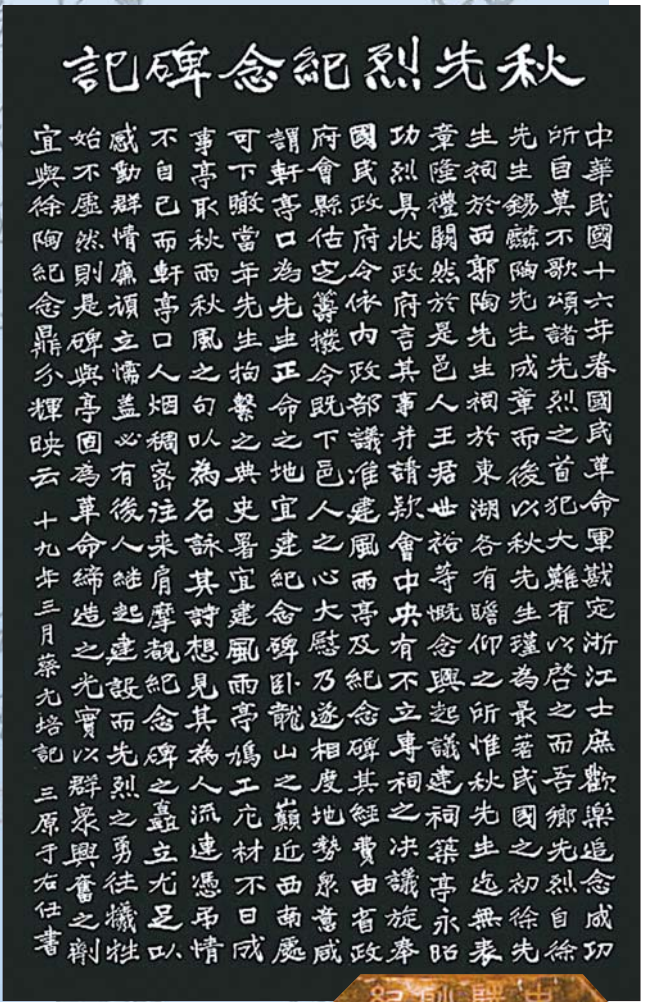 秋先烈紀念碑記
中華民國十六年春國民革命軍戡定浙江士庶歡樂追念成功
所自莫不歌頌諸先烈之首犯大難有以啓之而吾鄉先烈自徐
先生錫麟陶先生成章而後以秋先生瑾為最著民國之初徐先
生祠於西郭陶先生祠於東湖各有瞻仰之所惟秋先生迄無表
章隆禮闕然於是邑人王君世裕等慨念興起議建祠築亭永昭
功烈具狀政府言其事并請款會中央有不立專祠之決議旋奉
國民政府令依內政部議准建風雨亭及紀念碑其經費由省政
府會縣估定籌撥令既下邑人之心大慰乃遂相度地勢衆意咸
謂軒亭口為先生正命之地宜建紀念碑臥龍山之巔近西南處
可下瞰當年先生拘繫之典史署宜建風雨亭鳩工庀材不日成
事亭取秋雨秋風之句以為名詠其詩想見其為人流連憑弔情
不自已而軒亭口人烟稠密往来肩摩覩紀念碑之矗立尤足以
感動群情廉頑立懦蓋必有後人継起建設而先烈之勇往犧牲
始不虛然則是碑與亭固為革命締造之光實以群衆興奮之劑
宜與徐陶紀念鼎分輝映云 十九年三月蔡元培記 三原于右任書